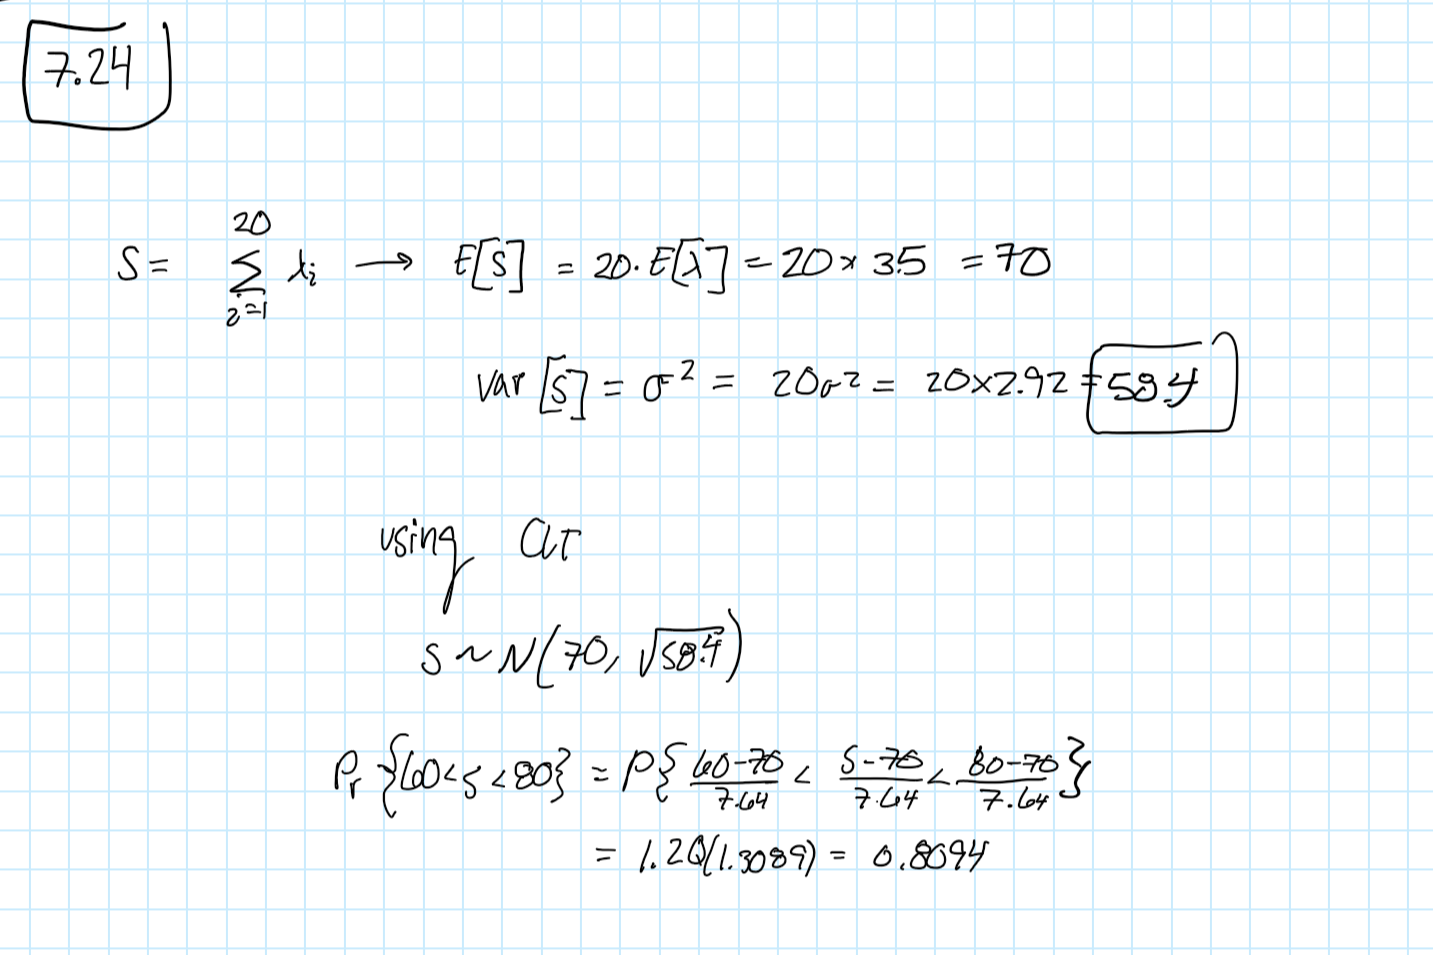 7.24
S = \sum_{i=1}^{20} λ_i → E[S] = 20·E[λ] = 20 × 3.5 = 70
var[S] = σ^2 = 20σ^2 = 20×2.92 = 58.4
using CLT
S ~ N(70, √58.4)
Pr {60<S<80} = P{ \frac{60-70}{7.64} < \frac{S-70}{7.64} < \frac{80-70}{7.64} }
= 1.2Q(1.3089) = 0.8094